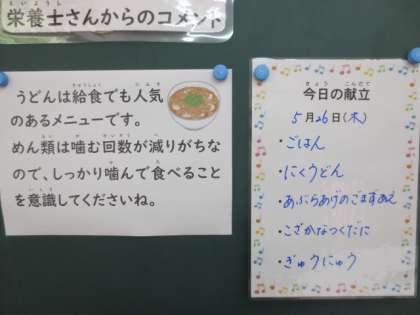 栄養士さんからのコメント
うどんは給食でも人気
のあるメニューです。
めん類は噛む回数が減りがちな
ので、しっかり噛んで食べること
を意識してくださいね。
今日の献立
5月26日(木)
・ごはん
・にくうどん
・あぶらあげのごまずあえ
・こざかなつくだに
・ぎゅうにゅう